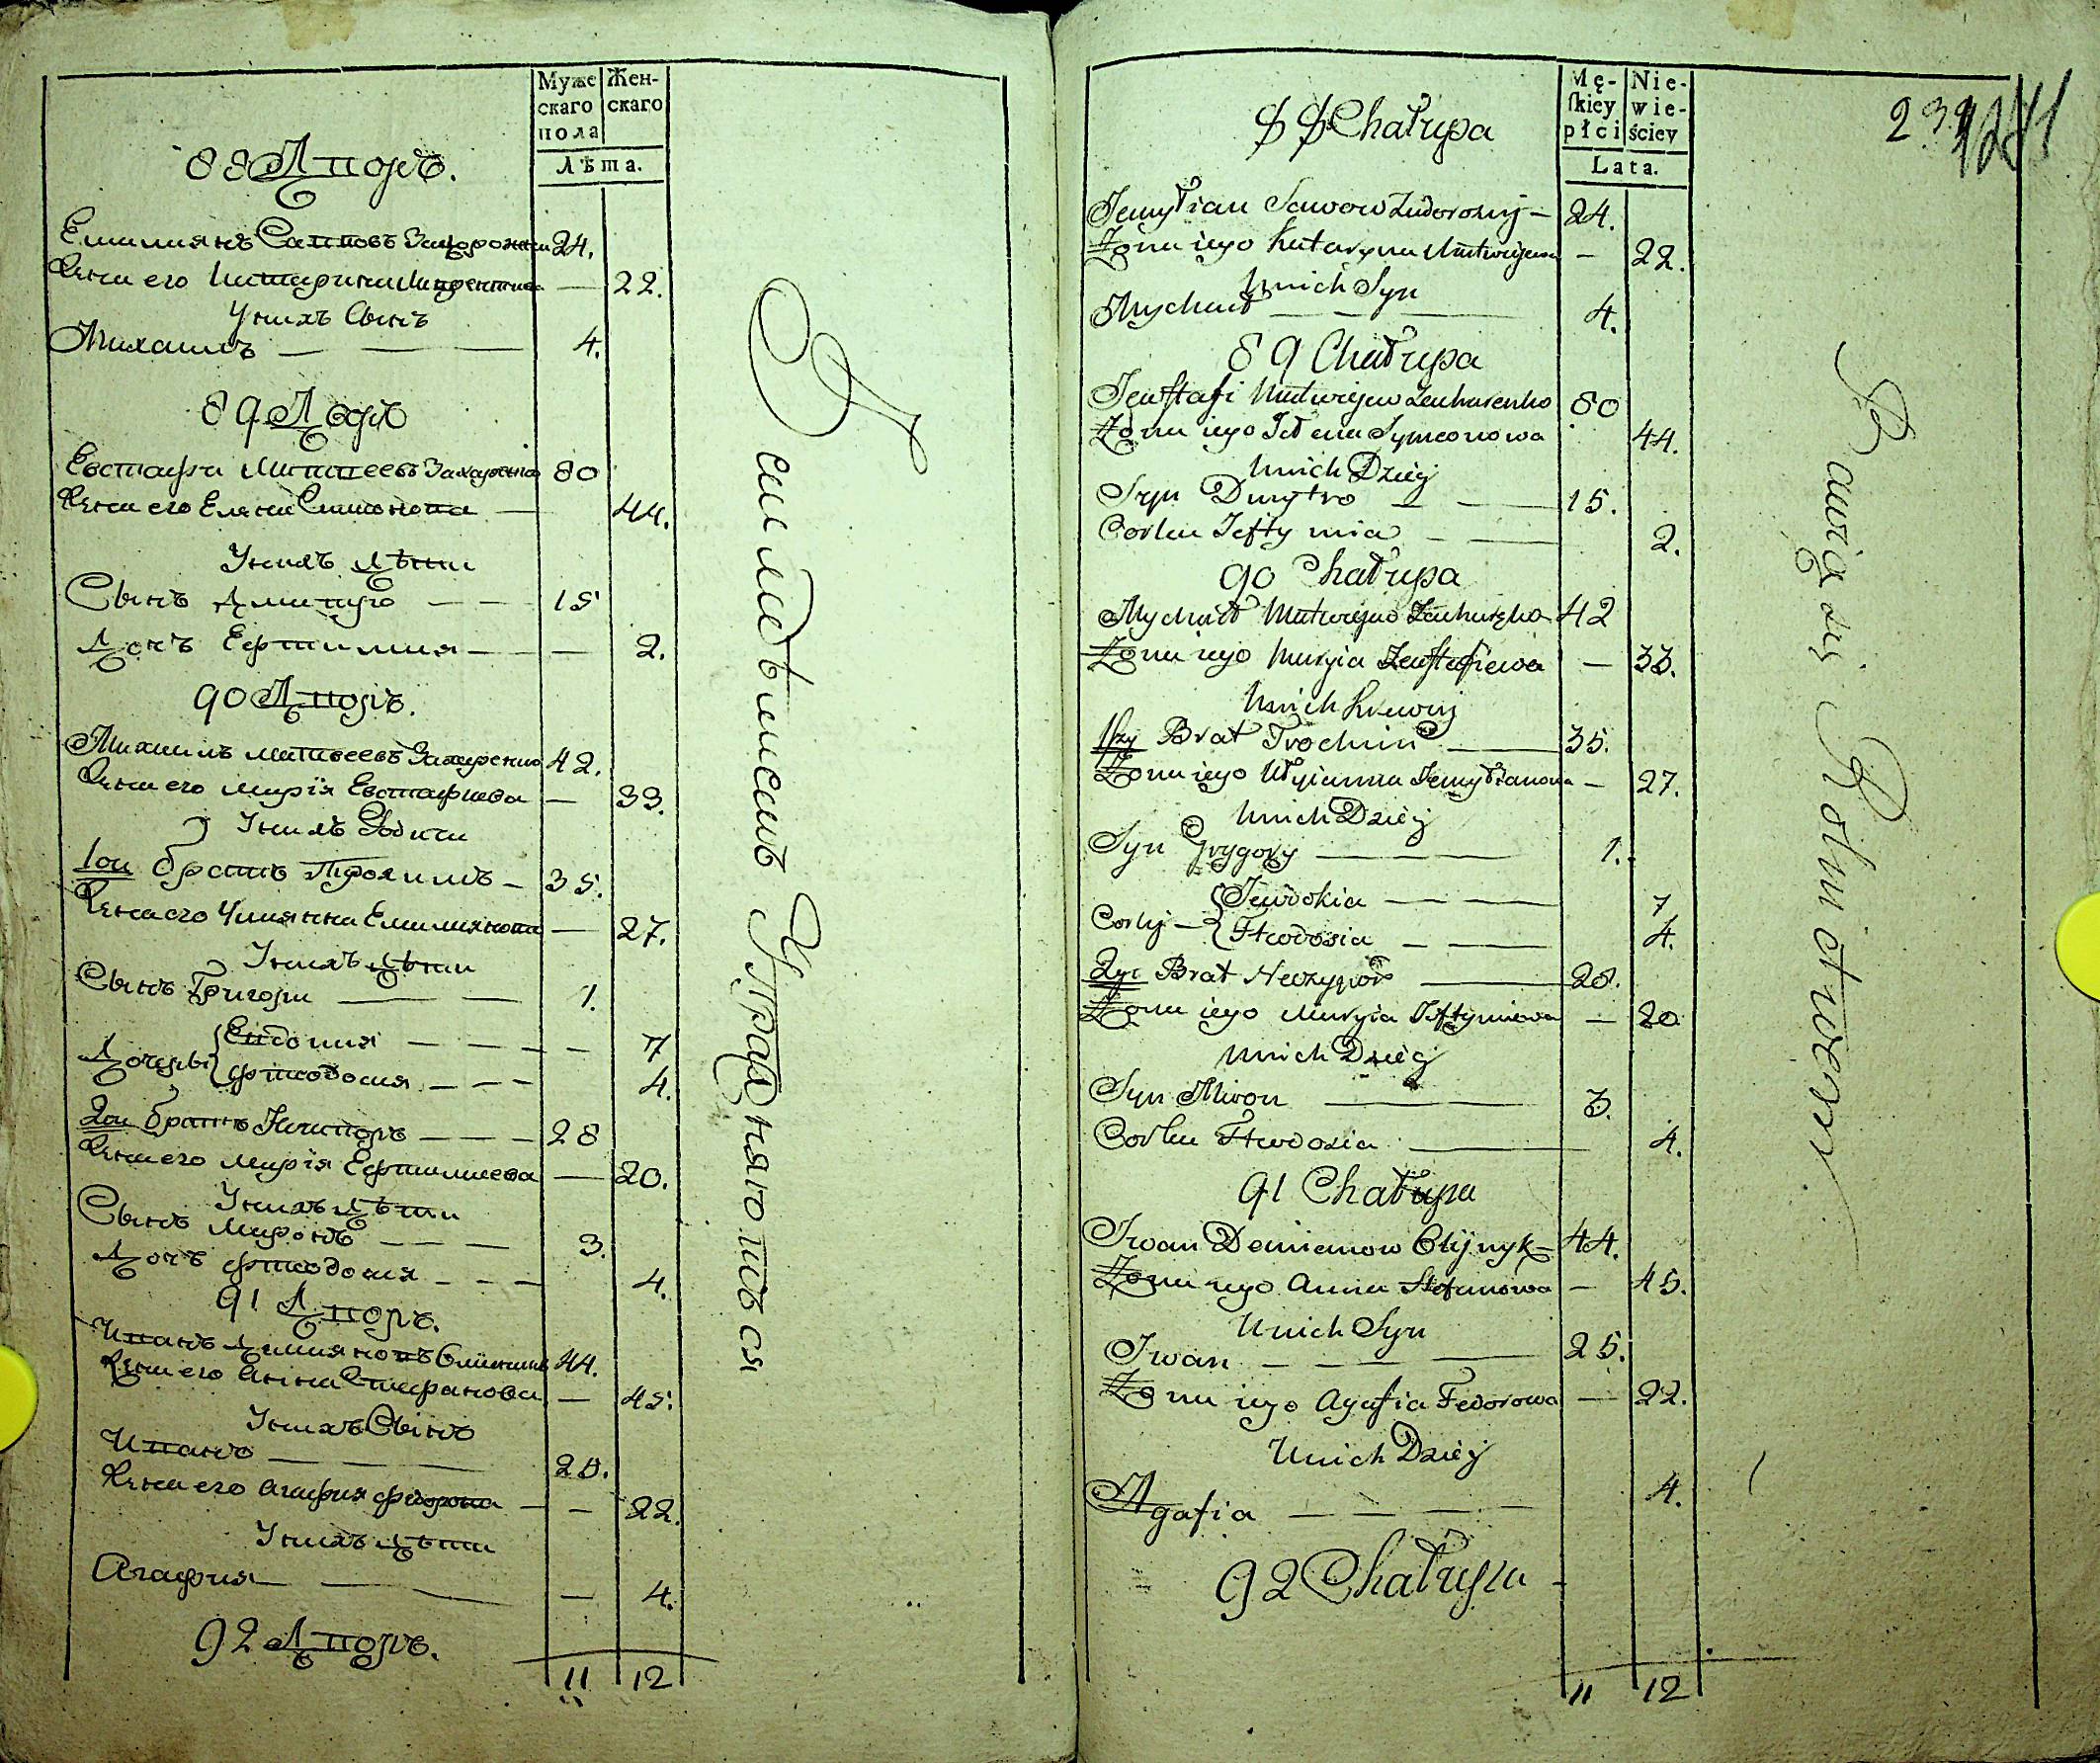 Муже
скаго
пола
Жен-
скаго
Лѣта.
88 Дворъ.
Емилиянъ Савовъ 24.
Жена его Катарина Матвеева — 22.
У нихъ Сынъ
Михаилъ — — 4.
89 Дворъ
Евстафи Матвеевъ Захаренко 80
Жена его Елена Симонова — 44.
У нихъ Дѣти
Сынъ Дмитро — — 15
Дочь Ефтимия — — 2.
90 Дворъ.
Михаилъ Матвеевъ Захаренко 42.
Жена его Мария Евстафиева — 33.
У нихъ Родичи
1ои братъ Трохимъ — 35.
Жена его Улиянна Емилиянова — 27.
У нихъ Дѣти
Сынъ Григори — — 1.
Дочери { Евдокия — — — — 7
Феодосия — — — 4.
2ои братъ Ничипоръ — — — 28
Жена его Мария Ефтимиева — 20.
У нихъ Дѣти
Сынъ Миронъ — — — 3.
Дочь Феодосия — — — 4.
91 Дворъ.
Иванъ Демияновъ Олиникъ 44.
Жена его Анна Стефанова — 45.
У нихъ Сынъ
Иванъ — — — 25.
Жена его Агафия Федорова — — 22.
У нихъ Дѣти
Агафия — — — — 4.
92 Дворъ.
11 12
Земледѣлиемъ Упражняютъся
Mę-
skiey
płci
Nie-
wie-
ściey
Lata.
239
88 Chałupa
Jemylian Sawow — 24.
Żona iego Kataryna Matwijewa — 22.
U nich Syn
Mychaił — — — 4.
89 Chałupa
Jewstafi Matwijew Zacharenko 80
Żona iego Jełena Symeonowa 44.
U nich Dzieći
Syn Dmytro — — 15.
Corka Jeftymia — — 2.
90 Chałupa
Mychaił Matwijew Zacharenko 42
Żona iego Maryia Jewstafiewa — 33.
U nich Krewni
1szy Brat Trochim — 35.
Żona iego Ulyianna Jemylianowa — 27.
U nich Dzieći
Syn Grygory — — — 1.
Corky — { Jewdokia — — — 7
Fteodosia — — 4.
2gi Brat Neczypor — 28.
Żona iego Maryia Jeftymiowa — 20
U nich Dzieći
Syn Miron — 3.
Corka Fteodosia — 4.
91 Chałupa
Iwan Demianow Olijnyk — 44.
Żona iego Anna Stefanowa — 45.
U nich Syn
Iwan — — — 25.
Żona iego Agafia Fedorowa — 22.
U nich Dzieći
Agafia — — — — 4.
92 Chałupa
11 12
Bawią się Rolnictwem